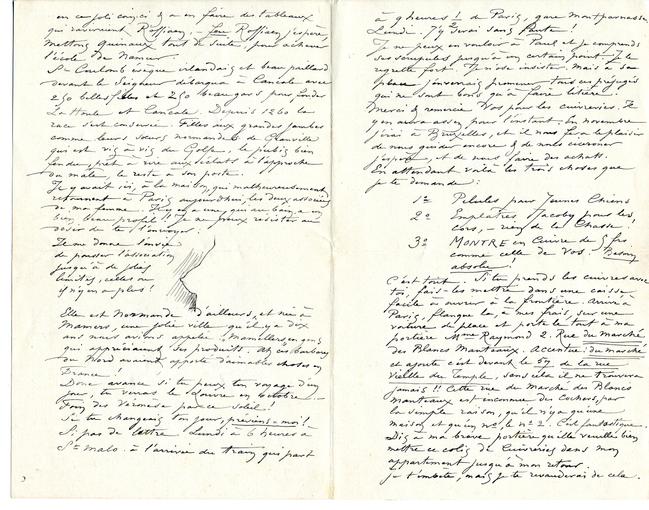 en ce joli coin ci & a en faire des tableaux
qui raviront Roffiaen. - Feu Roffiaen j'espère,
mettons quinaux tout de suite, pour achever
l'école de Namur.
St Coulomb évêque irlandais et beau paillard
devant le Seigneur débarqua à Cancale avec
250 belles filles et 250 beaux gars pour fonder
La Houle et Cancale. Depuis 1260 la
race s'est conservée. Filles aux grandes jambes
comme leurs soeurs normandes de Granville
qui est vis à vis du Golfe, le pubis bien
fendu, prêt à rire aux éclats à l'approche
du male, le reste à son poste.
Il y avait ici, à la maison, qui malheureusement
retournent à Paris aujourd'hui, les deux associées
de ma femme. Il y en a une, qui au bain, a un
bien beau profil!! Je ne peux résister au
désir de te l'envoyer:
Il me donne l'envie
de pousser l'association
jusqu'à de jolies
limites, celles où
il n'y en a plus!
Elle est Normande d'ailleurs, et née à
Mamers, une jolie ville qu'il y a dix
ans nous avions appelée: Mamellers en gens
qui apprécient ses produits. Ah ces barbares
du Nord avaient apporté d'aimables choses en
France!
Donc avance si tu peux ton voyage d'un
jour, tu verras le Louvre en Octobre. -
Fous des Véronèse par ce soleil!
Si tu changeais ton jour, préviens-moi!
Si pas de lettre - Lundi à 6 heures à
St Malo. à l'arrivée du train qui part
à 9 heures ½ de Paris, gare Montparnasse
Lundi. J'y serai sans faute!
Je ne peux en vouloir à Paul et je comprends
ses scrupules jusqu'à un certain point. Je le
regrette fort. Je n'ose insister. Mais à sa
place, j'enverrais promener tous ces préjugés
qui ne sont bons qu'à faire litière!
Merci & remercie Vos pour les cuivreries. Il
y en aura assez pour l'instant. En novembre
j'irai à Bruxelles, et il nous fera le plaisir
de nous guider encore & de nous ciceroner
j'espère, et de nous faire des achats.
En attendant voilà les trois choses que
je te demande:
1º Pilules pour Jeunes Chiens
2º Emplâtres Jacoby pour les
cors, - rien de la Chasse!
3º MONTRE en Cuivre de 5 frs
comme celle de Vos. - Besoin
absolu!
C'est tout. Si tu prends les cuivres avec
toi, fais-les mettre dans une caisse
facile à ouvrir à la frontière. Arrivé à
Paris, flanque la, à mes frais, sur une
voiture de place et porte le tout à ma
portière Mme Raymond 2. Rue du marché
des Blancs Manteaux. Accentue: du marché
et ajoute c'est devant le 57 de la rue
Vieille du Temple, sans cela il ne trouvera
jamais!! Cette rue du Marché des Blancs
Manteaux est inconnue des Cochers, par
la simple raison, qu'il n'y a qu'une
maison et qu'un nº, le nº 2. C'est fantastique.
Dis à ma brave portière qu'elle veuille bien
mettre ce colis de Cuivreries dans mon
appartement jusqu'à mon retour.
Je t'embête, mais je te revaudrai de cela.